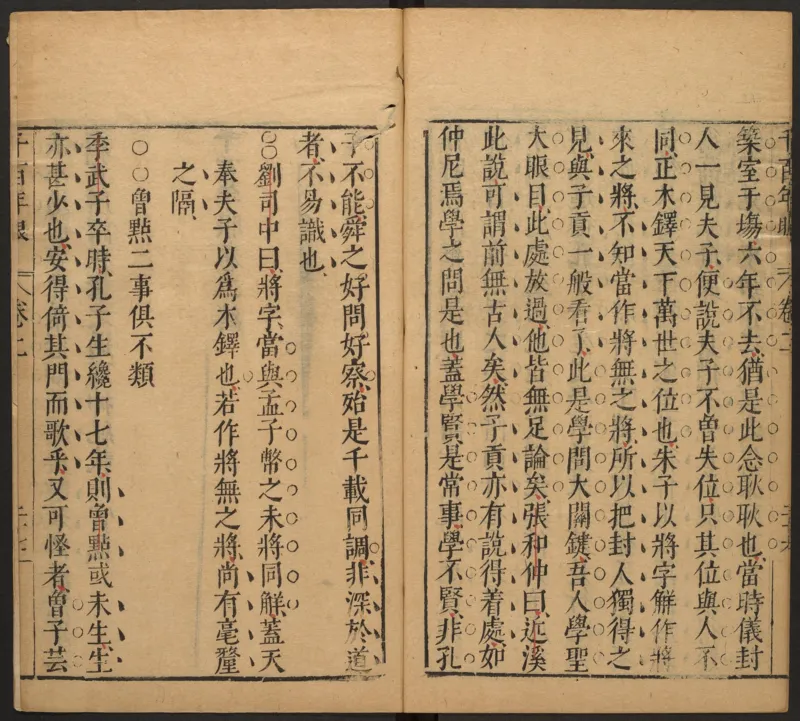 千百年眼 卷二
築室于塲六年不去猶是此念耿耿也當時儀封
人一見夫子便說夫子不曾失位只其位與人不
同正木鐸天下萬世之位也朱子以將字解作將
來之將不知當作將無之將所以把封人獨得之
見與子貢一般看了此是學問大關鍵吾人學聖
大眼目此處放過他皆無足論矣張和仲曰近溪
此說可謂前無古人矣然子貢亦有說得着處如
仲尼焉學之問是也蓋學賢是常事學不賢非孔
子不能舜之好問好察殆是千載同調非深於道
者不易識也
劉司中曰將字當與孟子幣之未將同解蓋天
奉夫子以爲木鐸也若作將無之將尚有毫釐
之隔
曾點二事俱不類
季武子卒時孔子生纔十七年則曾點或未生生
亦甚少也安得倚其門而歌乎又可怪者曾子芸
千百年眼 卷二